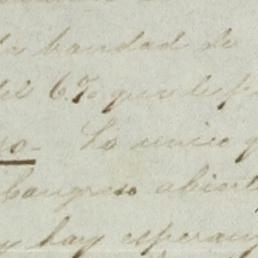 bondad de
del 6% que
Lo unico q
Congreso abiert
y hay esperan